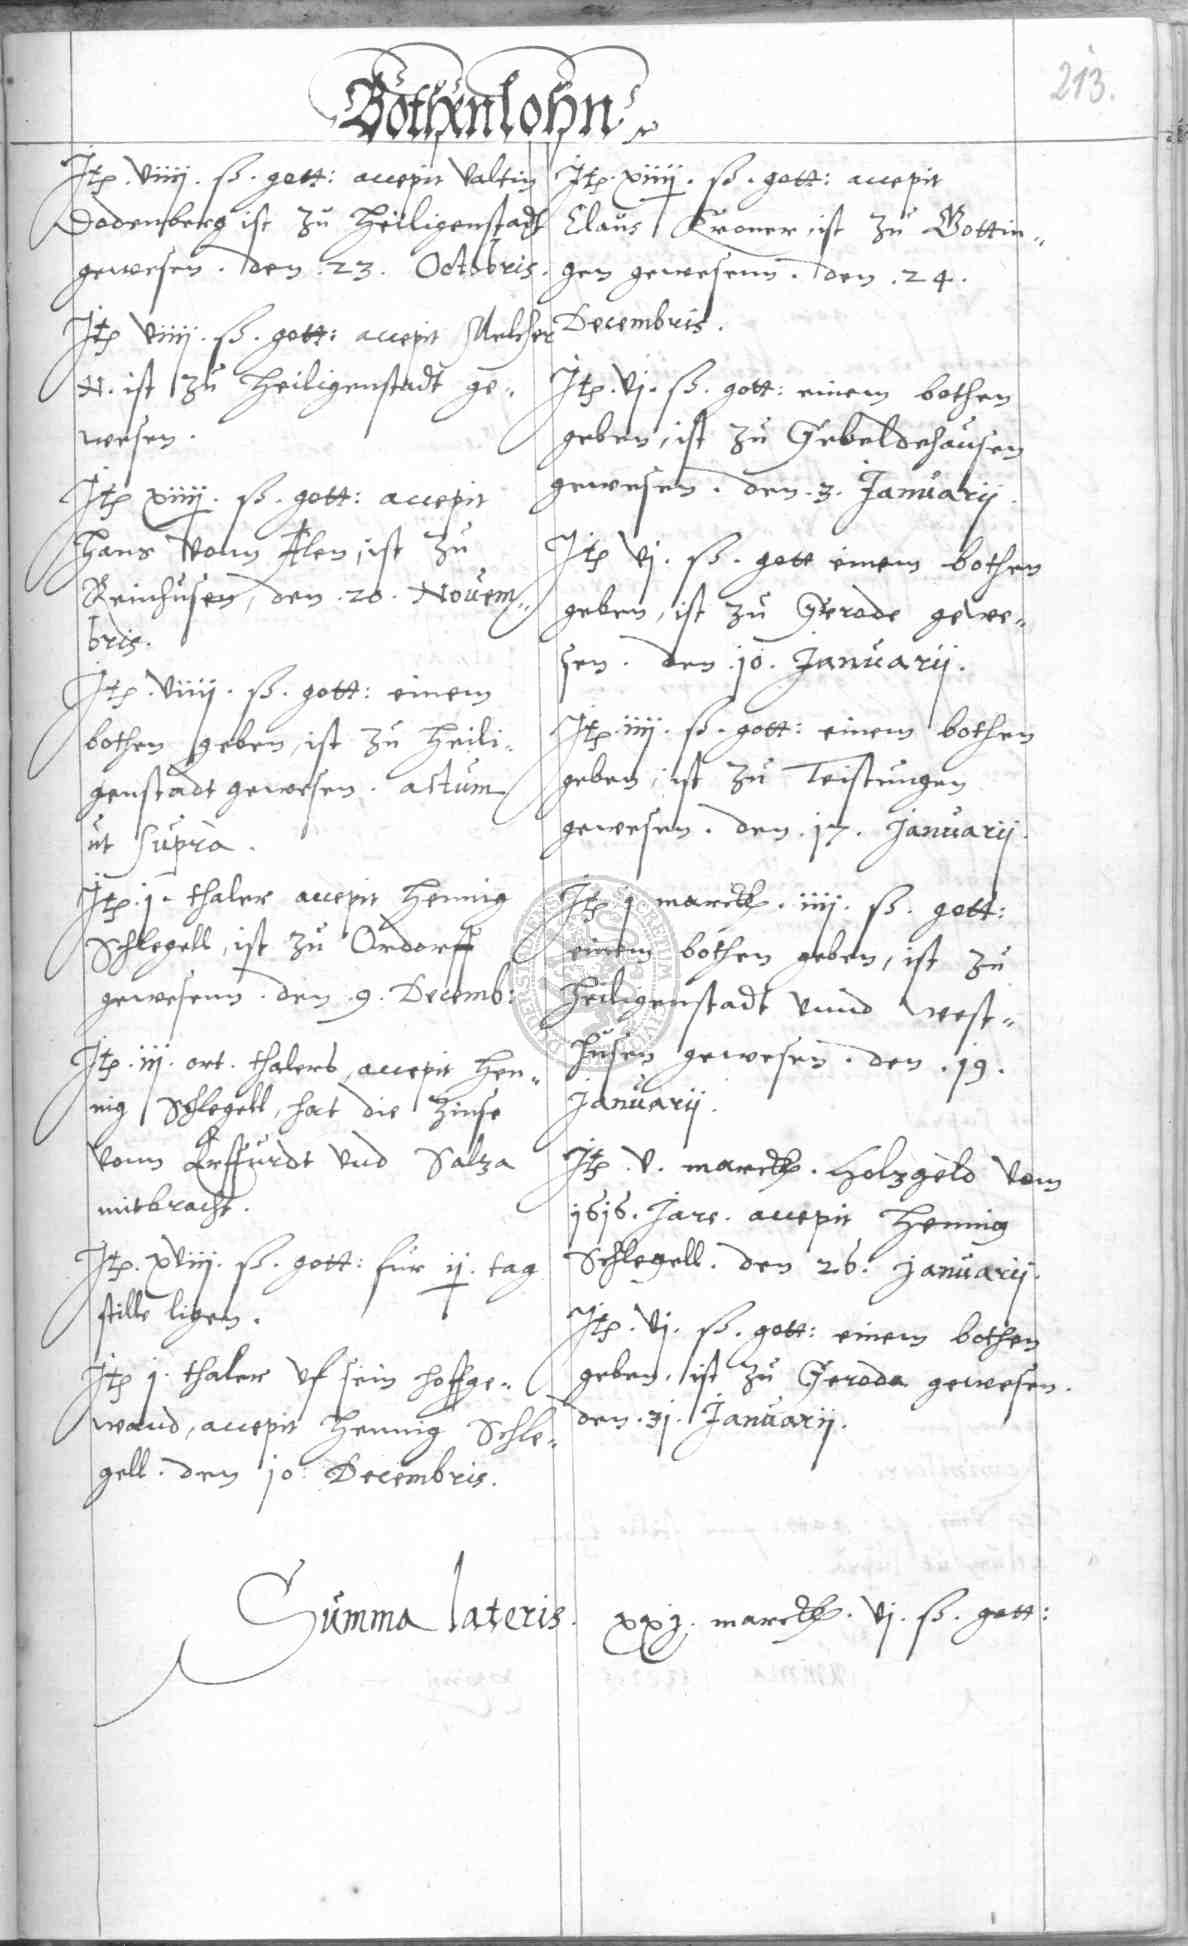 213.
Bothenlohn
Itp. viiij. ß. gott: accepit Valtin
Dodenberg ist zu Heilligenstadt
gewesen. den. 23. Octobris.
Itp viiij. ß. gott: accepit Melcher
N. ist zu Heiligenstadt ge„
wesen.
Itp xiiij. ß. gott: accepit
Hans vonn Alen, ist zu
Reinhusen, den. 20. Novem„
bris.
Itp. viiij. ß. gott: einem
bothen geben, ist zu Heili„
genstadt gewesen. actum
ut supra.
Itp. j. thaler accepit Hennig
Schlegell, ist zu Ordorff
gewesenn. den. 9. Decemb:
Itp. iij. ort. thalers, accepit Hen„
nig Schlegell, hat die Zinse
vonn Erffurdt vnd Salza
mitbracht.
Itp. xviij. ß. gott: für ij. tag
stille ligen.
Itp j. thaler vf sein hoffge„
wand, accepit Hennig Schle„
gell. den 10. Decembris.
Itp. xiiij. ß. gott: accepit
Claus Kroner, ist zu Gottin„
gen gewesenn. den. 24.
Decembris.
Itp. vj. ß. gott: einem bothen
geben, ist zu Gebeldehausen
gewesen. den. 3. Januarij.
Itp vj. ß. gott einem bothen
geben, ist zu Gerode gewe„
sen. den. 10. Januarij.
Itp. iiij. ß. gott: einem bothen
geben, ist zu Teistungen
gewesen. den. 17. Januarij.
Itp j marck. iiij. ß. gott:
einem bothen geben, ist zu
Heiligenstadt vnnd west„
husen gewesen. den. 19.
Januarij.
Itp. v. marck. Holzgeld vom
1616. Jare. accepit Hennig
Schlegell. den 26. Januarij.
Itp. vj. ß. gott: einem bothen
geben, ist zu Geroda gewesen.
den. 31. Januarij.
Summa lateris. xxj. marck. vj. ß. gott: